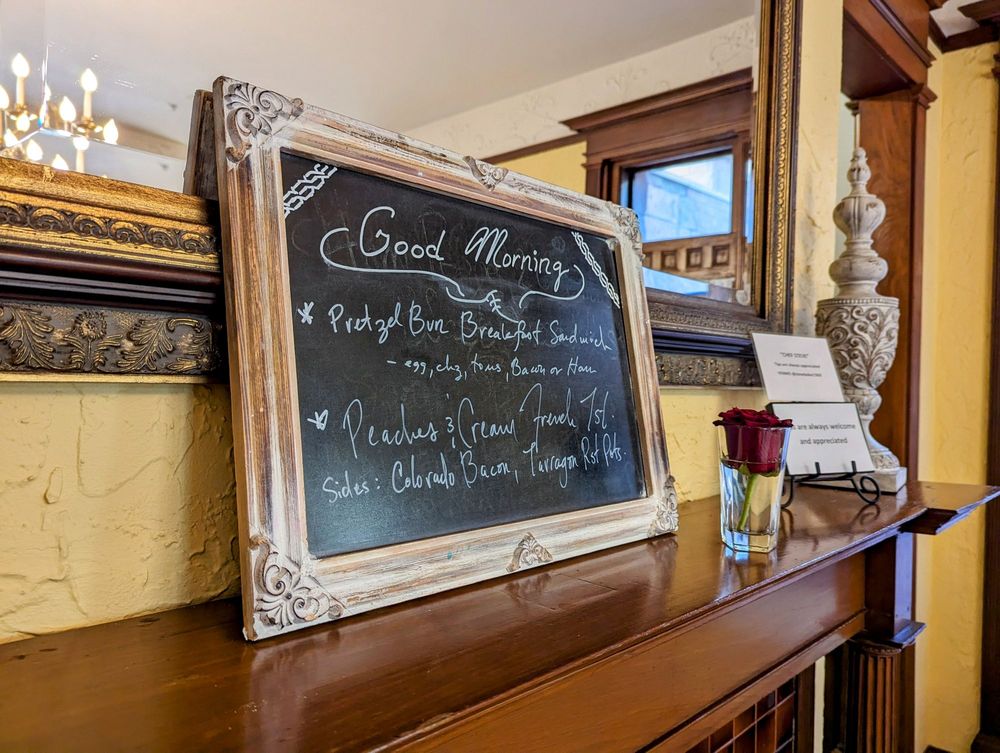 Good Morning
* Pretzel Bun Breakfast Sandwich
- egg, chz, toms, Bacon or Ham
* Peaches & Cream French Tst.
Sides: Colorado Bacon, Tarragon Rst Pots.
"CHEF STEVE"
Tips are always appreciated
are always welcome
and appreciated